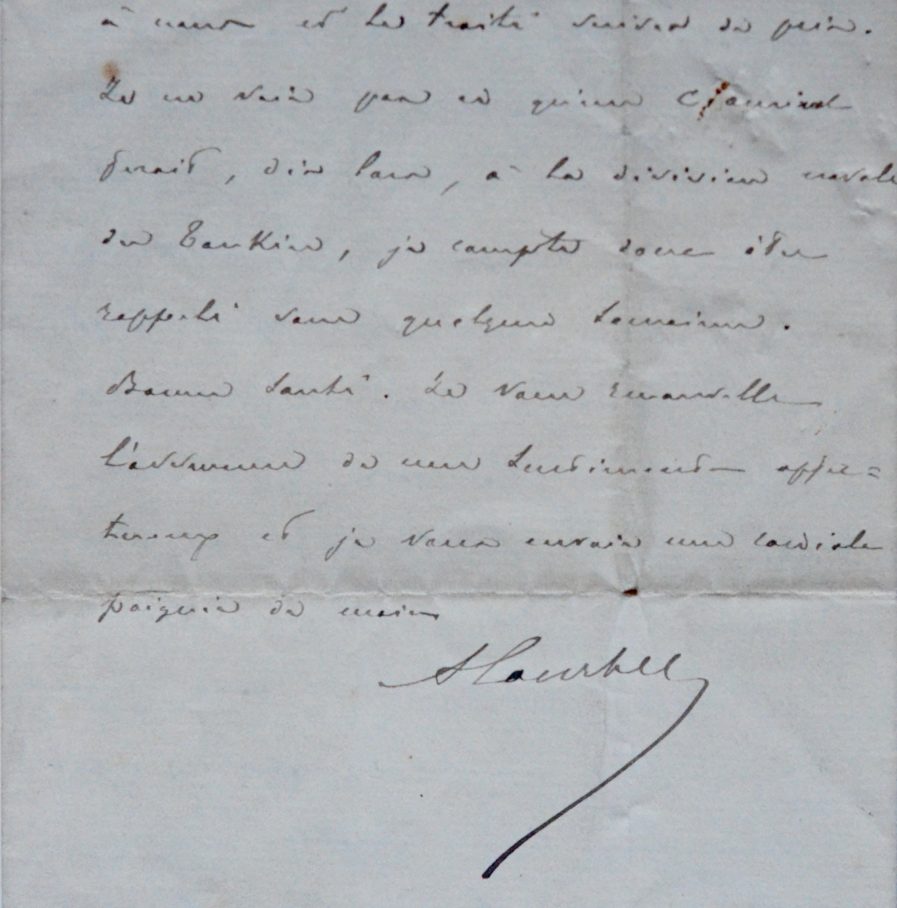 à nous et le traité suivra de près.
Je ne vois pas ce qu'une
ferait, dès lors, à la division navale
du Tonkin, je compte donc être
rappelé sous quelques semaines.
Bonne santé. Je vous renouvelle
l'assurance de mes sentiments affec=
tueux et je vous envoie une cordiale
poignée de main
ACourbet